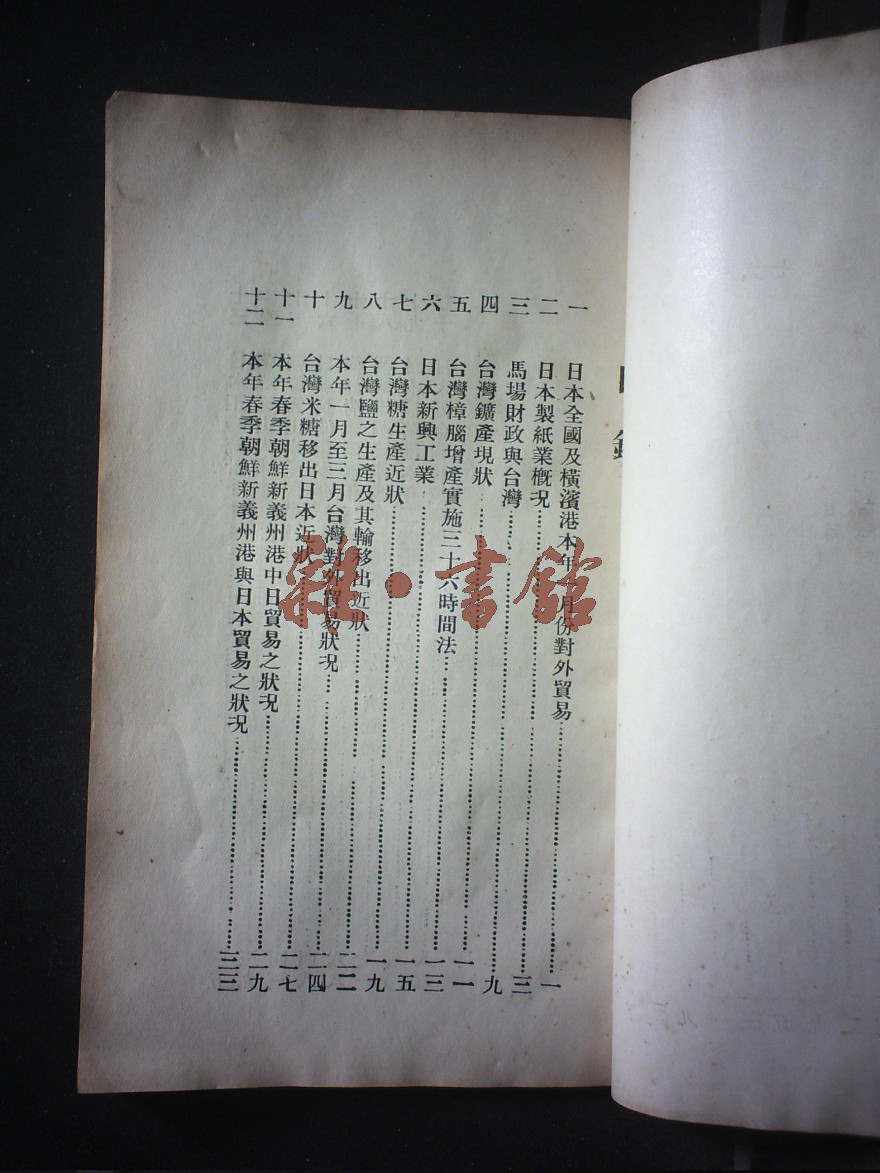 一 日本全國及橫濱港本年一月份對外貿易……一
二 日本製紙業概况……三
三 馬場財政與台灣……九
四 台灣鑛產現狀……一一
五 台灣樟腦增產實施三十六時間法……一三
六 日本新興工業……一五
七 台灣糖生產近狀……一九
八 台灣鹽之生產及其輸移出近狀……二二
九 本年一月至三月台灣對外貿易狀况……二四
十 台灣米糖移出日本近狀……二七
十一 本年春季朝鮮新義州港中日貿易之狀况……二九
十二 本年春季朝鮮新義州港與日本貿易之狀况……三三
雜·書館